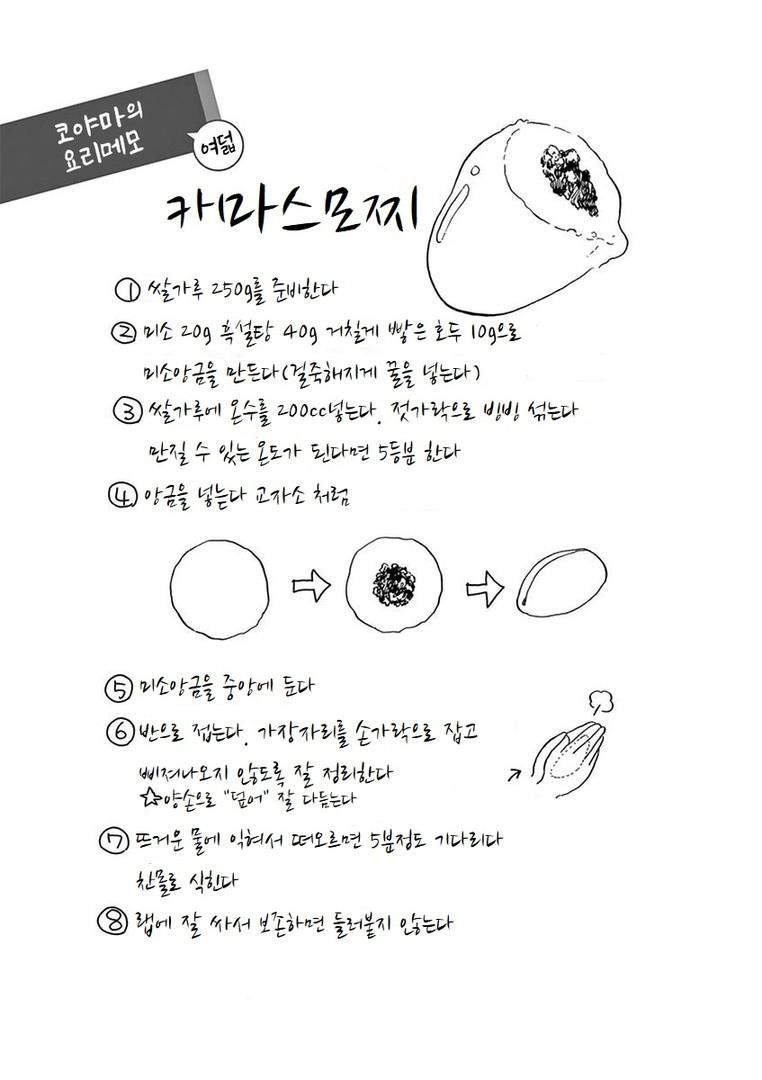 코야마의
요리메모
여덟
카마스모찌
① 쌀가루 250g를 준비한다
② 미소 20g 흑설탕 40g 거칠게 빻은 호두 10g으로
미소앙금을 만든다(걸죽해지게 꿀을 넣는다)
③ 쌀가루에 온수를 200cc넣는다. 젓가락으로 빙빙 섞는다
만질 수 있는 온도가 된다면 5등분 한다
④ 앙금을 넣는다 교자소 처럼
⑤ 미소앙금을 중앙에 둔다
⑥ 반으로 접는다. 가장자리를 손가락으로 잡고
삐져나오지 않도록 잘 정리한다
☆양손으로 "덮어" 잘 다듬는다
⑦ 뜨거운 물에 익혀서 떠오르면 5분정도 기다리다
찬물로 식힌다
⑧ 랩에 잘 싸서 보존하면 들러붙지 않는다